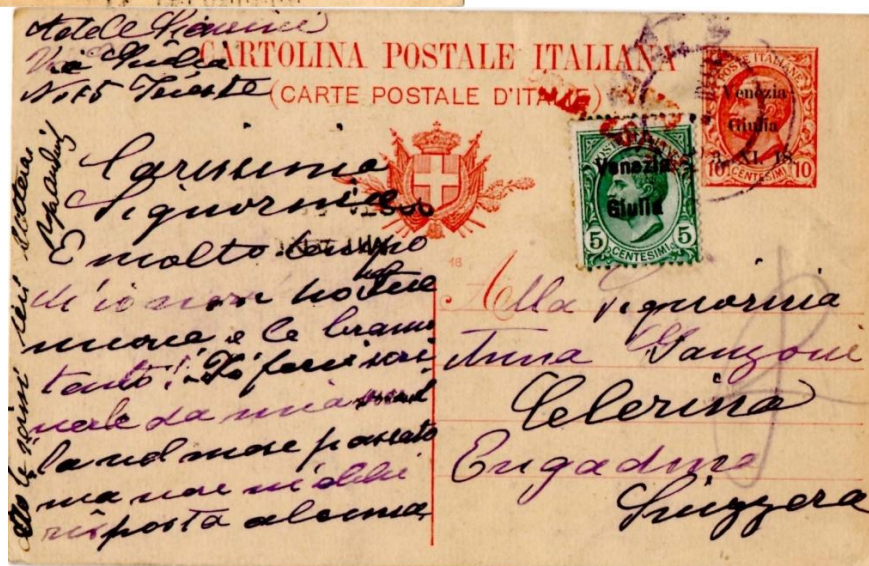 Adele
Via
No 15 Trieste
CARTOLINA POSTALE ITALIANA
(CARTE POSTALE D'ITALIE)
POSTE ITALIANE
Venezia
Giulia
3. XI. 18.
10 CENTESIMI 10
Venezia
Giulia
5 CENTESIMI 5
Carissima
Signorina
È molto tempo
ch'io non ho Sue
nuove e le bramo
tanto! Le feci scri
vere da mia sorel
la nel mese passato
ma non n'ebbi
risposta alcuna
16
Alla Signorina
Anna Ganzoni
Celerina
Engadina
Suizzera